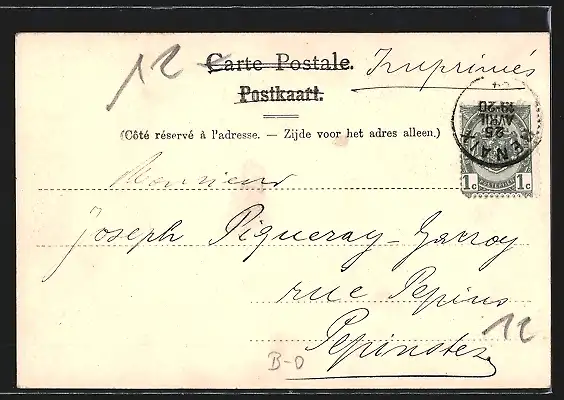 12
Carte Postale. Imprimés
Postkaart.
(Côté réservé à l'adresse. — Zijde voor het adres alleen.)
RENAIX
25
AVRIL
19-20
1c POSTERIJEN 1c
Monsieur
Joseph Piqueray-Garroy
rue Pepins
Pepinster
12
B-0